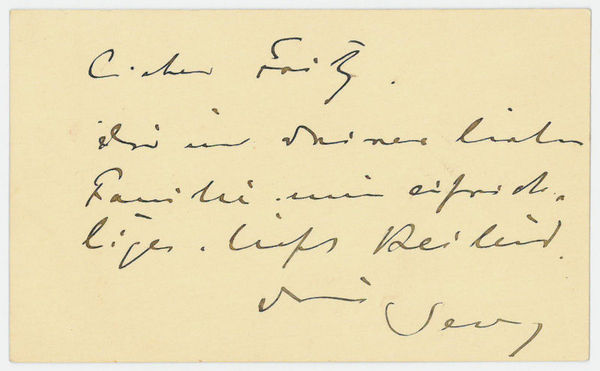 Lieber Fritz.
Dir und Deiner lieben
Familie mein aufrich-
tiges. tiefst Beileid.
Dein